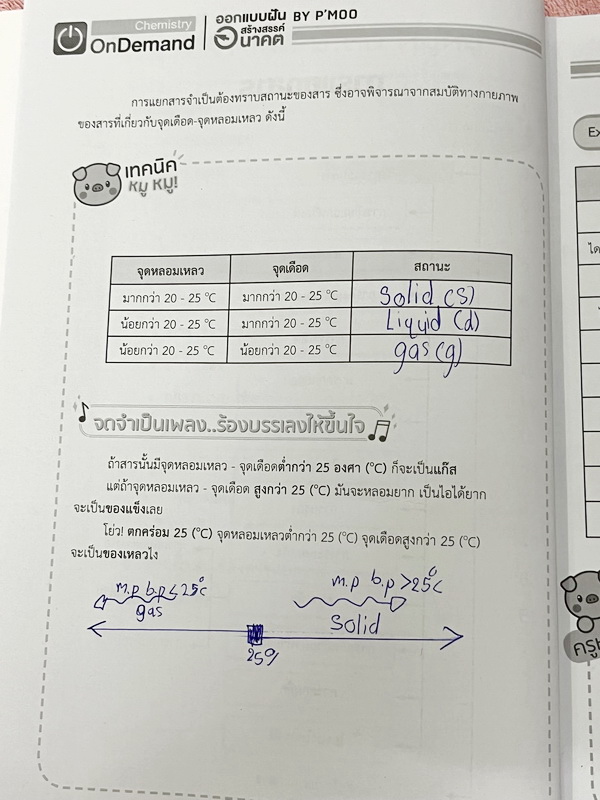 Chemistry
OnDemand
ออกแบบฝัน BY P'MOO
สร้างสรรค์
อนาคต
การแยกสารจำเป็นต้องทราบสถานะของสาร ซึ่งอาจพิจารณาจากสมบัติทางกายภาพ
ของสารที่เกี่ยวกับจุดเดือด-จุดหลอมเหลว ดังนี้
เทคนิค
หมู หมู!
จุดหลอมเหลว จุดเดือด สถานะ
มากกว่า 20 - 25 °C มากกว่า 20 - 25 °C Solid (s)
น้อยกว่า 20 - 25 °C มากกว่า 20 - 25 °C Liquid (d)
น้อยกว่า 20 - 25 °C น้อยกว่า 20 - 25 °C gas (g)
จดจำเป็นเพลง..ร้องบรรเลงให้ขึ้นใจ
ถ้าสารนั้นมีจุดหลอมเหลว - จุดเดือดต่ำกว่า 25 องศา (°C) ก็จะเป็นแก๊ส
แต่ถ้าจุดหลอมเหลว - จุดเดือด สูงกว่า 25 (°C) มันจะหลอมยาก เป็นไอได้ยาก
จะเป็นของแข็งเลย
โย่ว! ตกคร่อม 25 (°C) จุดหลอมเหลวต่ำกว่า 25 (°C) จุดเดือดสูงกว่า 25 (°C)
จะเป็นของเหลวไง
m.p b.p ≤ 25°c
gas
m.p b.p > 25°c
Solid
Ex
ได
ครู